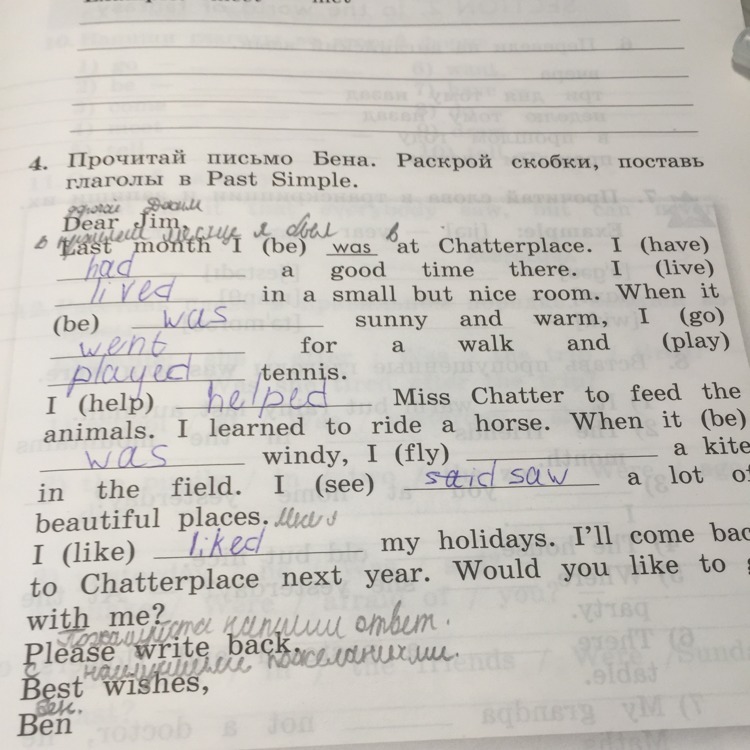 4. Прочитай письмо Бена. Раскрой скобки, поставь
глаголы в Past Simple.
Dear Jim,
в месяце я был в
Last month I (be) was at Chatterplace. I (have)
had a good time there. I (live)
lived in a small but nice room. When it
(be) was sunny and warm, I (go)
went for a walk and (play)
played tennis.
I (help) helped Miss Chatter to feed the
animals. I learned to ride a horse. When it (be)
was windy, I (fly) a kite
in the field. I (see) said saw a lot of
beautiful places.
I (like) liked my holidays. I'll come bac
to Chatterplace next year. Would you like to g
with me?
Пожалуйста напиши ответ.
Please write back.
с наилучшими пожеланиями.
Best wishes,
Бен.
Ben